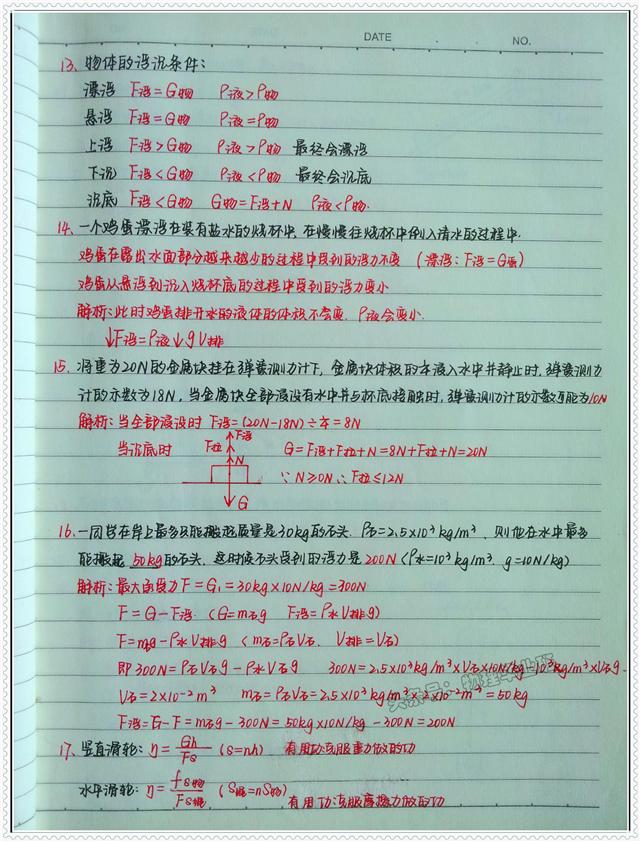 DATE
NO.
13、物体的浮沉条件：
漂浮 F浮=G物 ρ液>ρ物
悬浮 F浮=G物 ρ液=ρ物
上浮 F浮>G物 ρ液>ρ物 最终会漂浮
下沉 F浮<G物 ρ液<ρ物 最终会沉底
沉底 F浮<G物 G物=F浮+N ρ液<ρ物.
14、一个鸡蛋漂浮在装有盐水的烧杯中，在慢慢往烧杯中倒入清水的过程中.
鸡蛋在露出水面部分越来越少的过程中受到的浮力不变 (漂浮：F浮=G蛋)
鸡蛋从悬浮到沉入烧杯底的过程中受到的浮力变小
解析：此时鸡蛋排开水的液体的体积不会变. ρ液会变小.
↓F浮=ρ液↓gV排
15、将重为20N的金属块挂在弹簧测力计下，金属块体积的1/4浸入水中并静止时，弹簧测力
计的示数为18N，当金属块全部浸没有水中并与杯底接触时，弹簧测力计的示数可能为10N
解析：当全部浸没时 F浮=(20N-18N)÷1/4=8N
当沉底时 G=F浮+F拉+N=8N+F拉+N=20N
F浮
F拉
N
∵N≥0N ∴F拉≤12N
G
16、一同学在岸上最多只能搬起质量是30kg的石头. ρ石=2.5×10³kg/m³，则他在水中最多
能搬起 50kg的石头. 这时候石头受到的浮力是200N (ρ水=10³kg/m³. g=10N/kg)
解析：最大承受力F=G₁=30kg×10N/kg=300N
F=G-F浮 (G=m石g F浮=ρ水V排g)
F=m石g-ρ水V排g (m石=ρ石V石. V排=V石)
即300N=ρ石V石g-ρ水V石g 300N=2.5×10³kg/m³×V石×10N/kg-10³kg/m³×V石g.
V石=2×10⁻²m³ m石=ρ石V石=2.5×10³kg/m³×2×10⁻²m³=50kg
F浮=G-F=m石g-300N=50kg×10N/kg-300N=200N
17、竖直滑轮：η=Gh/Fs (s=nh) 有用功克服重力做的功
水平滑轮：η=fs物/Fs绳 (s绳=ns物) 有用功克服摩擦力做的功